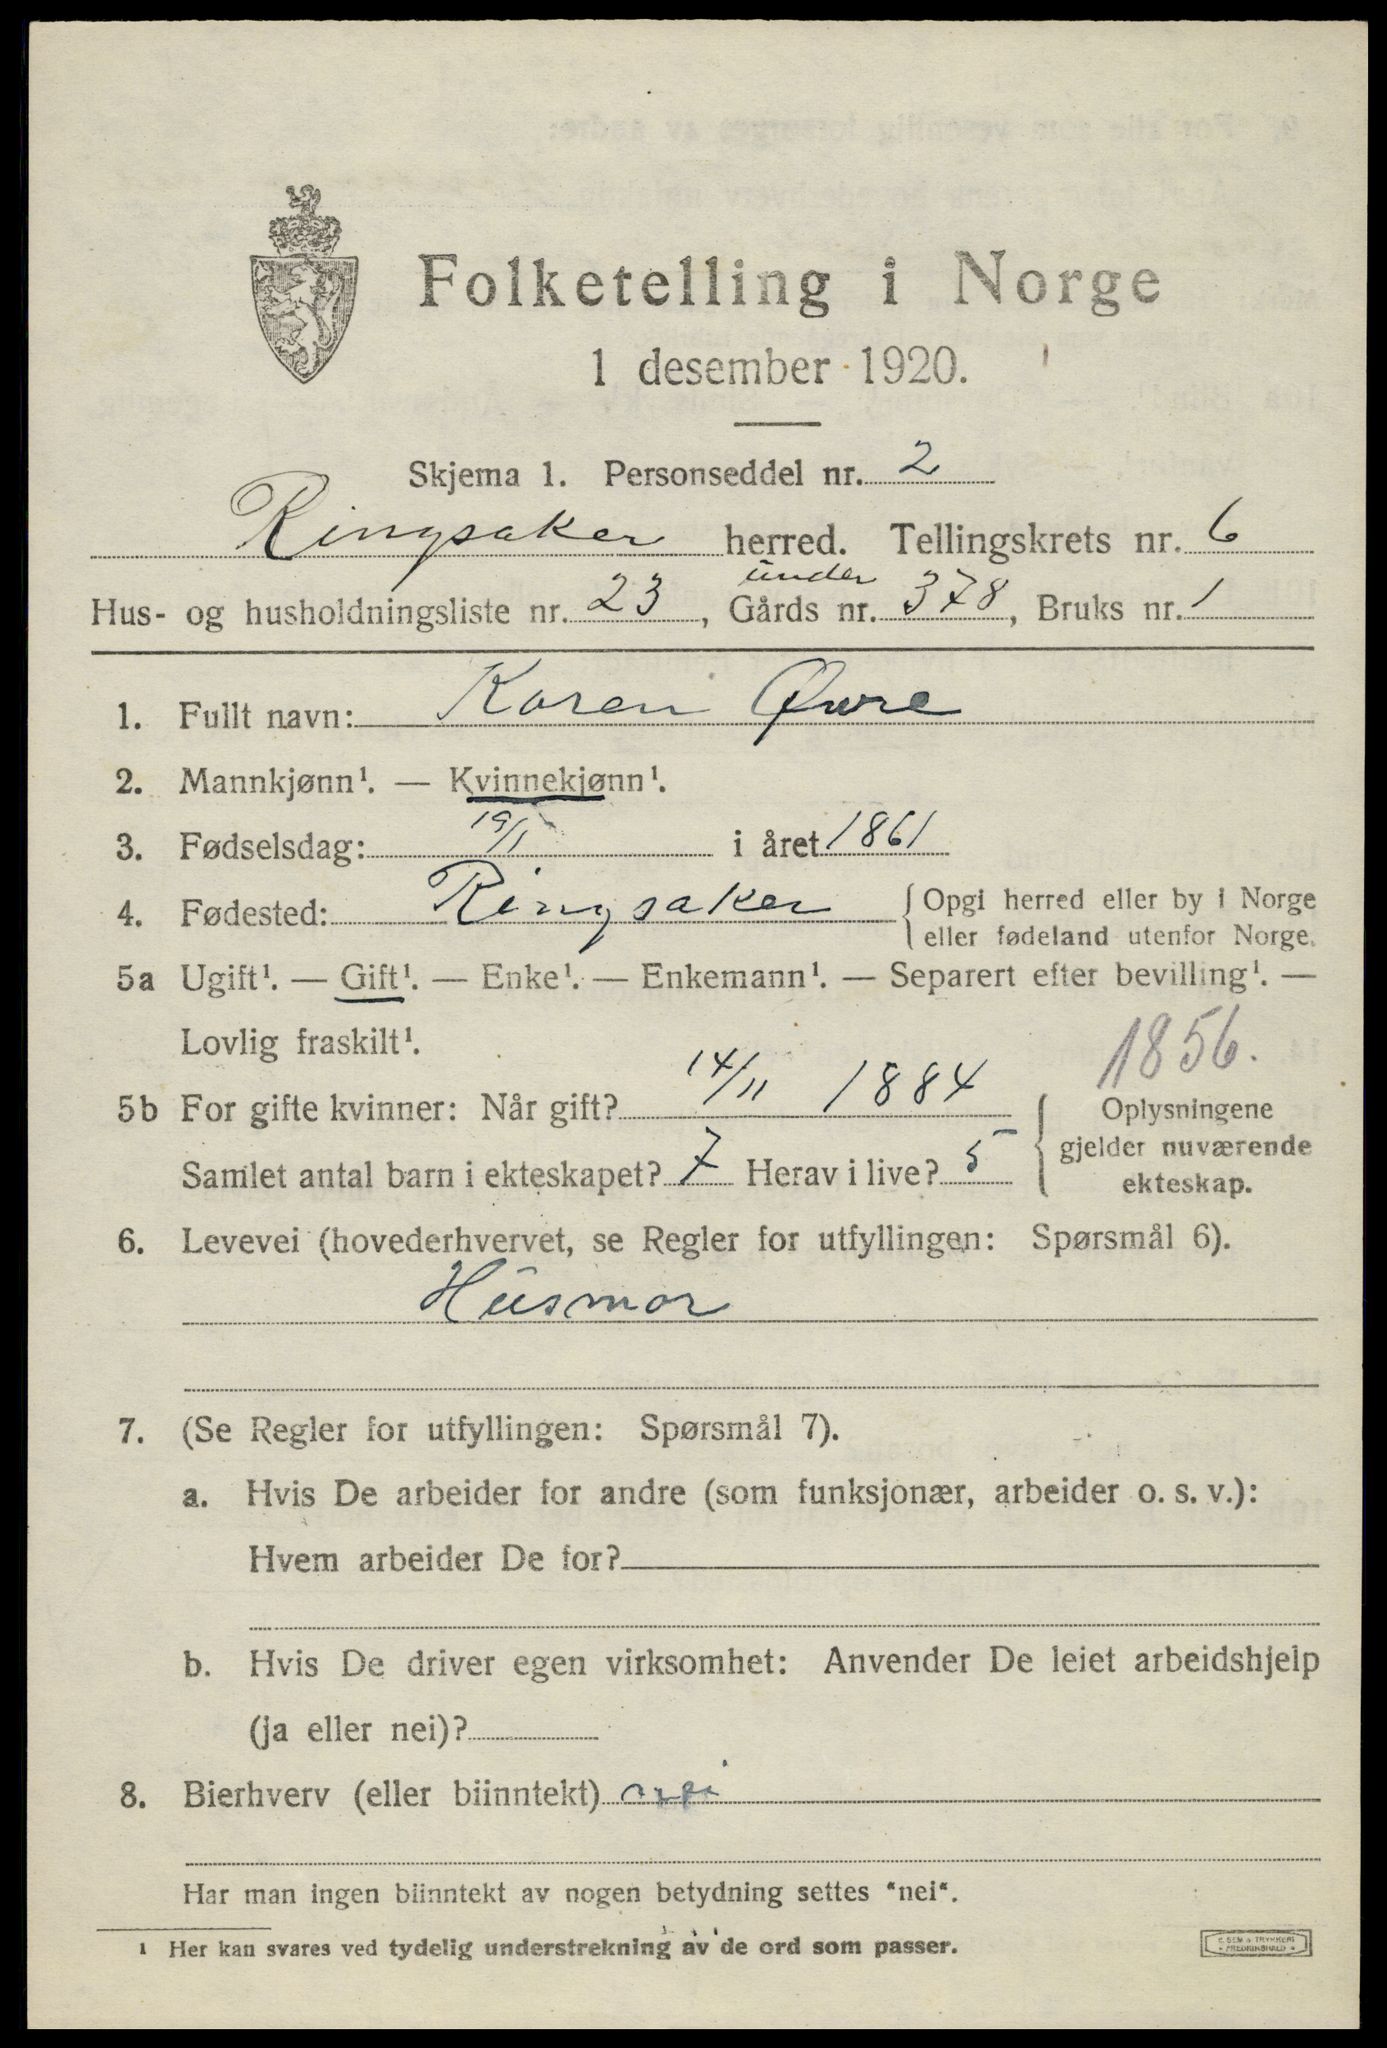 Folketelling i Norge
1 desember 1920.
Skjema 1. Personseddel nr. 2
Ringsaker herred. Tellingskrets nr. 6
under
Hus- og husholdningsliste nr. 23, Gårds nr. 378, Bruks nr. 1
1. Fullt navn: Karen Øvre
2. Mannkjønn¹. — Kvinnekjønn¹.
3. Fødselsdag: 19/1 i året 1861
4. Fødested: Ringsaker { Opgi herred eller by i Norge
eller fødeland utenfor Norge.
5a Ugift¹. — Gift¹. — Enke¹. — Enkemann¹. — Separert efter bevilling¹. —
Lovlig fraskilt¹.
1856.
5b For gifte kvinner: Når gift? 14/11 1884
Samlet antal barn i ekteskapet? 7 Herav i live? 5
Oplysningene
gjelder nuværende
ekteskap.
6. Levevei (hovederhvervet, se Regler for utfyllingen: Spørsmål 6).
Husmor
7. (Se Regler for utfyllingen: Spørsmål 7).
a. Hvis De arbeider for andre (som funksjonær, arbeider o. s. v.):
Hvem arbeider De for?
b. Hvis De driver egen virksomhet: Anvender De leiet arbeidshjelp
(ja eller nei)?
8. Bierhverv (eller biinntekt) nei
Har man ingen biinntekt av nogen betydning settes "nei".
¹ Her kan svares ved tydelig understrekning av de ord som passer.